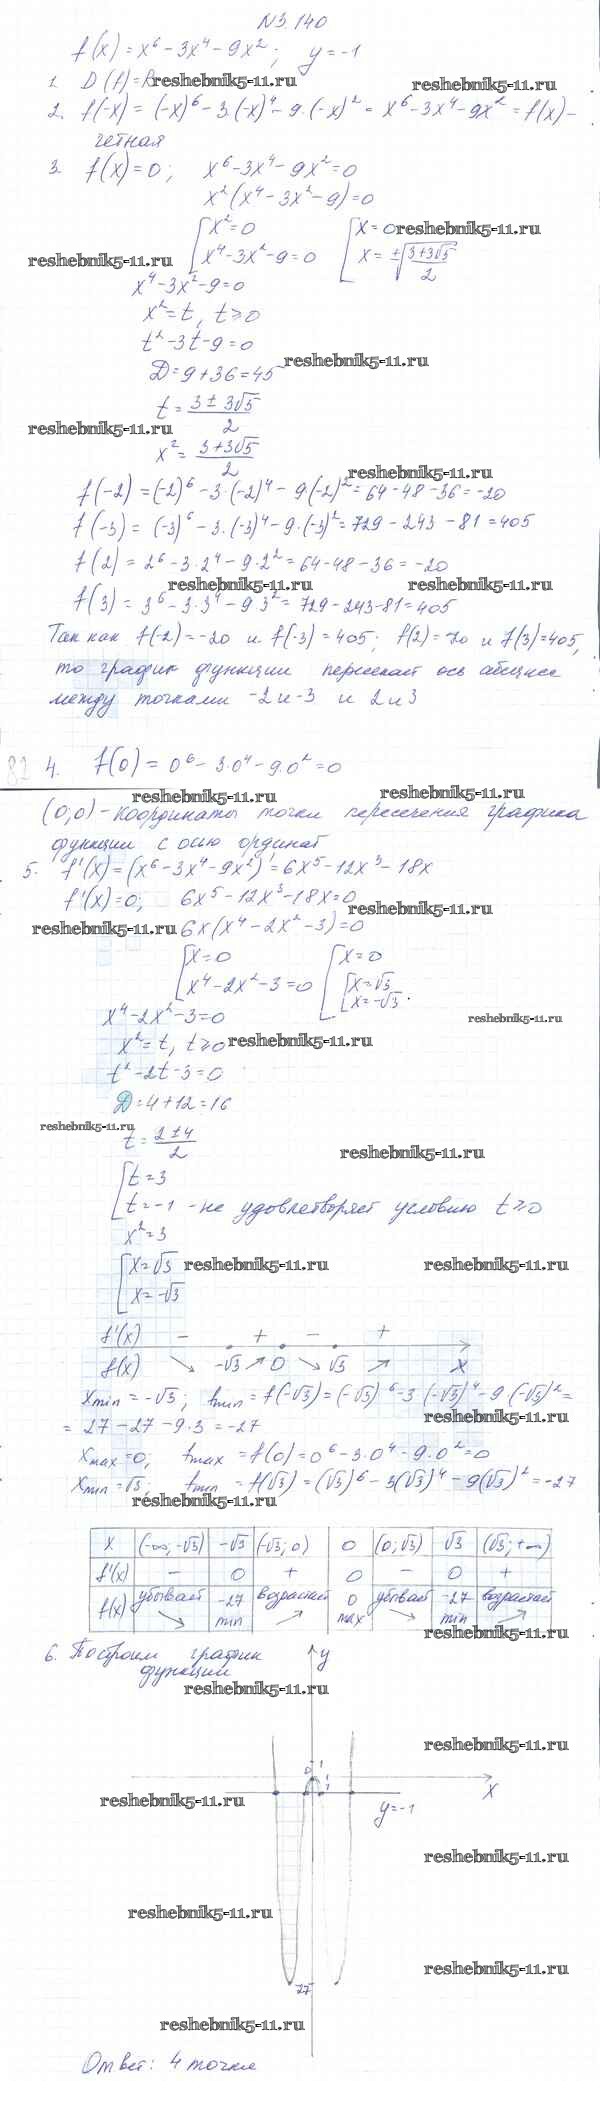 N3.140
f(x) = x⁶ - 3x⁴ - 9x²; y = -1
1. D(f) = R reshebnik5-11.ru reshebnik5-11.ru
2. f(-x) = (-x)⁶ - 3·(-x)⁴ - 9·(-x)² = x⁶ - 3x⁴ - 9x² = f(x) -
четная
3. f(x) = 0; x⁶ - 3x⁴ - 9x² = 0
x²(x⁴ - 3x² - 9) = 0
[x² = 0 [x = 0 reshebnik5-11.ru
reshebnik5-11.ru [x⁴ - 3x² - 9 = 0 [x = ±√((3+3√5)/2)
x⁴ - 3x² - 9 = 0
x² = t, t ≥ 0
t² - 3t - 9 = 0
reshebnik5-11.ru
Д = 9 + 36 = 45
t = (3 ± 3√5)/2
reshebnik5-11.ru
x² = (3+3√5)/2
reshebnik5-11.ru
f(-2) = (-2)⁶ - 3·(-2)⁴ - 9·(-2)² = 64 - 48 - 36 = -20
f(-3) = (-3)⁶ - 3·(-3)⁴ - 9·(-3)² = 729 - 243 - 81 = 405
f(2) = 2⁶ - 3·2⁴ - 9·2² = 64 - 48 - 36 = -20
reshebnik5-11.ru reshebnik5-11.ru
f(3) = 3⁶ - 3·3⁴ - 9·3² = 729 - 243 - 81 = 405
Так как f(-2) = -20 и f(-3) = 405; f(2) = -20 и f(3) = 405,
то график функции пересекает ось абсцисс
между точками -2 и -3 и 2 и 3
82 4. f(0) = 0⁶ - 3·0⁴ - 9·0² = 0
reshebnik5-11.ru reshebnik5-11.ru
(0;0) - координаты точки пересечения графика
функции с осью ординат
5. f'(x) = (x⁶ - 3x⁴ - 9x²)' = 6x⁵ - 12x³ - 18x
f'(x) = 0; 6x⁵ - 12x³ - 18x = 0
reshebnik5-11.ru
reshebnik5-11.ru 6x(x⁴ - 2x² - 3) = 0
[x = 0 [x = 0
[x⁴ - 2x² - 3 = 0 [[x = √3
[x = -√3.
x⁴ - 2x² - 3 = 0 reshebnik5-11.ru
x² = t, t ≥ 0 reshebnik5-11.ru
t² - 2t - 3 = 0
Д = 4 + 12 = 16
reshebnik5-11.ru
t = (2 ± 4)/2 reshebnik5-11.ru
[t = 3
[t = -1 - не удовлетворяет условию t ≥ 0
x² = 3
[x = √3 reshebnik5-11.ru reshebnik5-11.ru
[x = -√3
f'(x) - + - +
f(x) ↘ -√3 ↗ 0 ↘ √3 ↗ x
xmin = -√3; fmin = f(-√3) = (-√3)⁶ - 3·(-√3)⁴ - 9·(-√3)² =
reshebnik5-11.ru
= 27 - 27 - 9·3 = -27
xmax = 0; fmax = f(0) = 0⁶ - 3·0⁴ - 9·0² = 0
xmin = √3; fmin = f(√3) = (√3)⁶ - 3(√3)⁴ - 9(√3)² = -27
reshebnik5-11.ru
x (-∞; -√3) -√3 (-√3; 0) 0 (0; √3) √3 (√3; +∞)
f'(x) - 0 + 0 - 0 +
f(x) убывает ↘ -27 min возрастает ↗ 0 max убывает ↘ -27 min возрастает ↗
reshebnik5-11.ru
6. Построим график
функции
y
reshebnik5-11.ru
reshebnik5-11.ru
0 1
1
x
reshebnik5-11.ru
y = -1
reshebnik5-11.ru
reshebnik5-11.ru
reshebnik5-11.ru
-27
reshebnik5-11.ru
Ответ: 4 точки